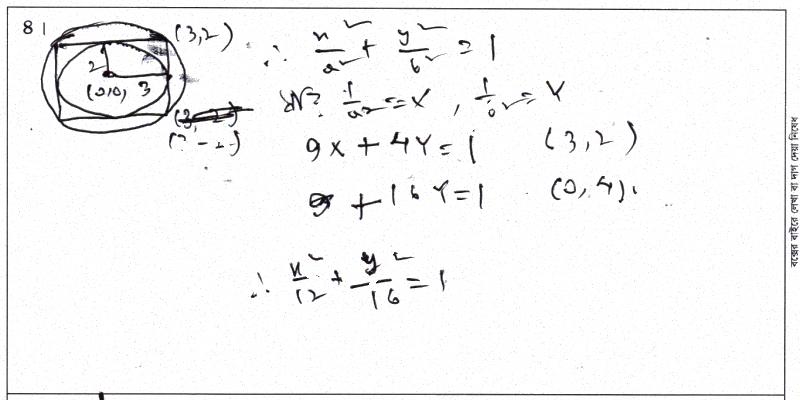 81
(3,2)
2
(0,0) 3
(3,-2)
∴ x²/a² + y²/b² = 1
ধরি, 1/a² = X, 1/b² = Y
9X + 4Y = 1 (3,2)
+ 16Y = 1 (0,4).
∴ x²/12 + y²/16 = 1
বক্সের বাইরে লেখা বা দাগ দেয়া নিষেধ